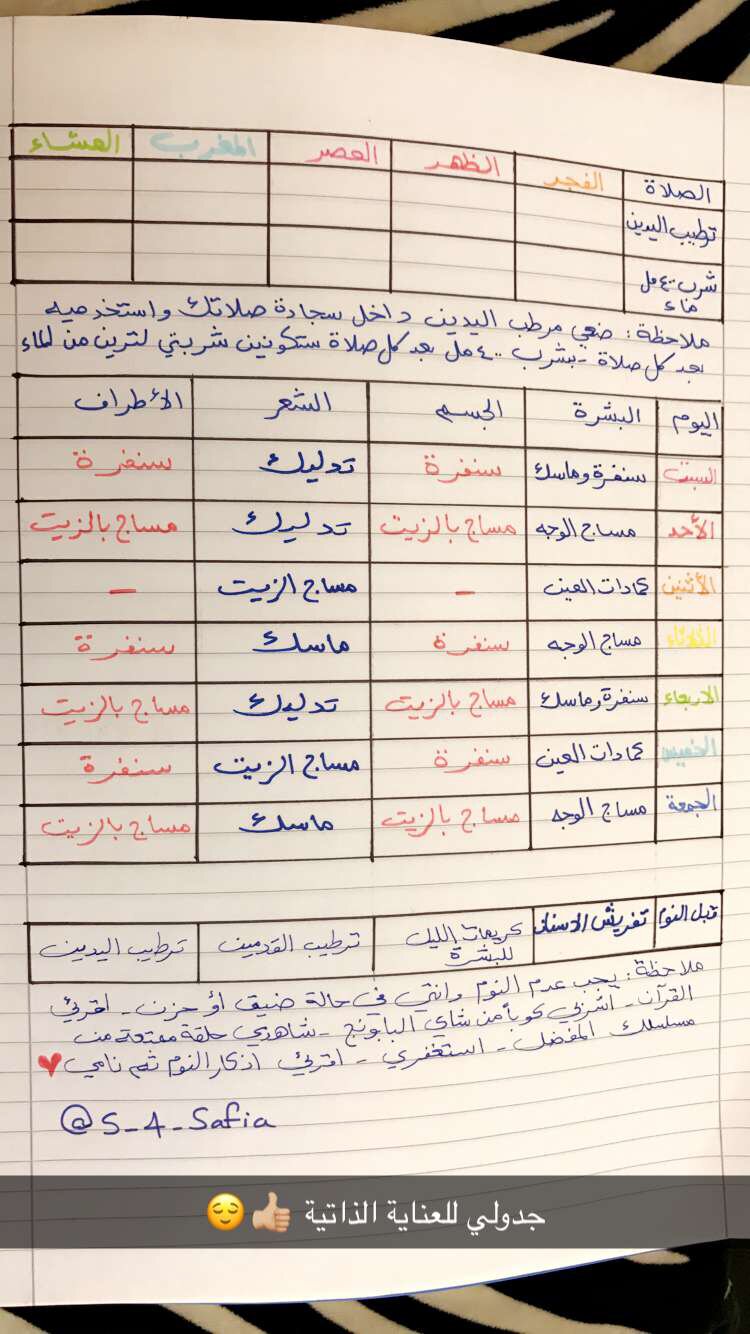 الصلاة الفجر الظهر العصر المغرب العشاء
ترطيب اليدين
شرب ٤٠٠ مل
ماء
ملاحظة: ضعي مرطب اليدين داخل سجادة صلاتك واستخدميه
بعد كل صلاة - بشرب ٤٠٠ مل بعد كل صلاة ستكونين شربتي لترين من الماء
اليوم البشرة الجسم الشعر الأطراف
السبت سنفرة وماسك سنفرة تدليك سنفرة
الأحد مساج الوجه مساج بالزيت تدليك مساج بالزيت
الأثنين كمادات العين - مساج الزيت -
الثلاثاء مساج الوجه سنفرة ماسك سنفرة
الاربعاء سنفرة وماسك مساج بالزيت تدليك مساج بالزيت
الخميس كمادات العين سنفرة مساج الزيت سنفرة
الجمعة مساج الوجه مساج بالزيت ماسك مساج بالزيت
قبل النوم تفريش الاسنان كريمات الليل للبشرة ترطيب القدمين ترطيب اليدين
ملاحظة: يجب عدم النوم وانتي في حالة ضيق أو حزن - اقرئي
القرآن - اشربي كوباً من شاي البابونج - شاهدي حلقة ممتعة من
مسلسلك المفضل - استغفري - اقرئي اذكار النوم ثم نامي ♥
@S_4_Safia
جدولي للعناية الذاتية 👍🏼😌